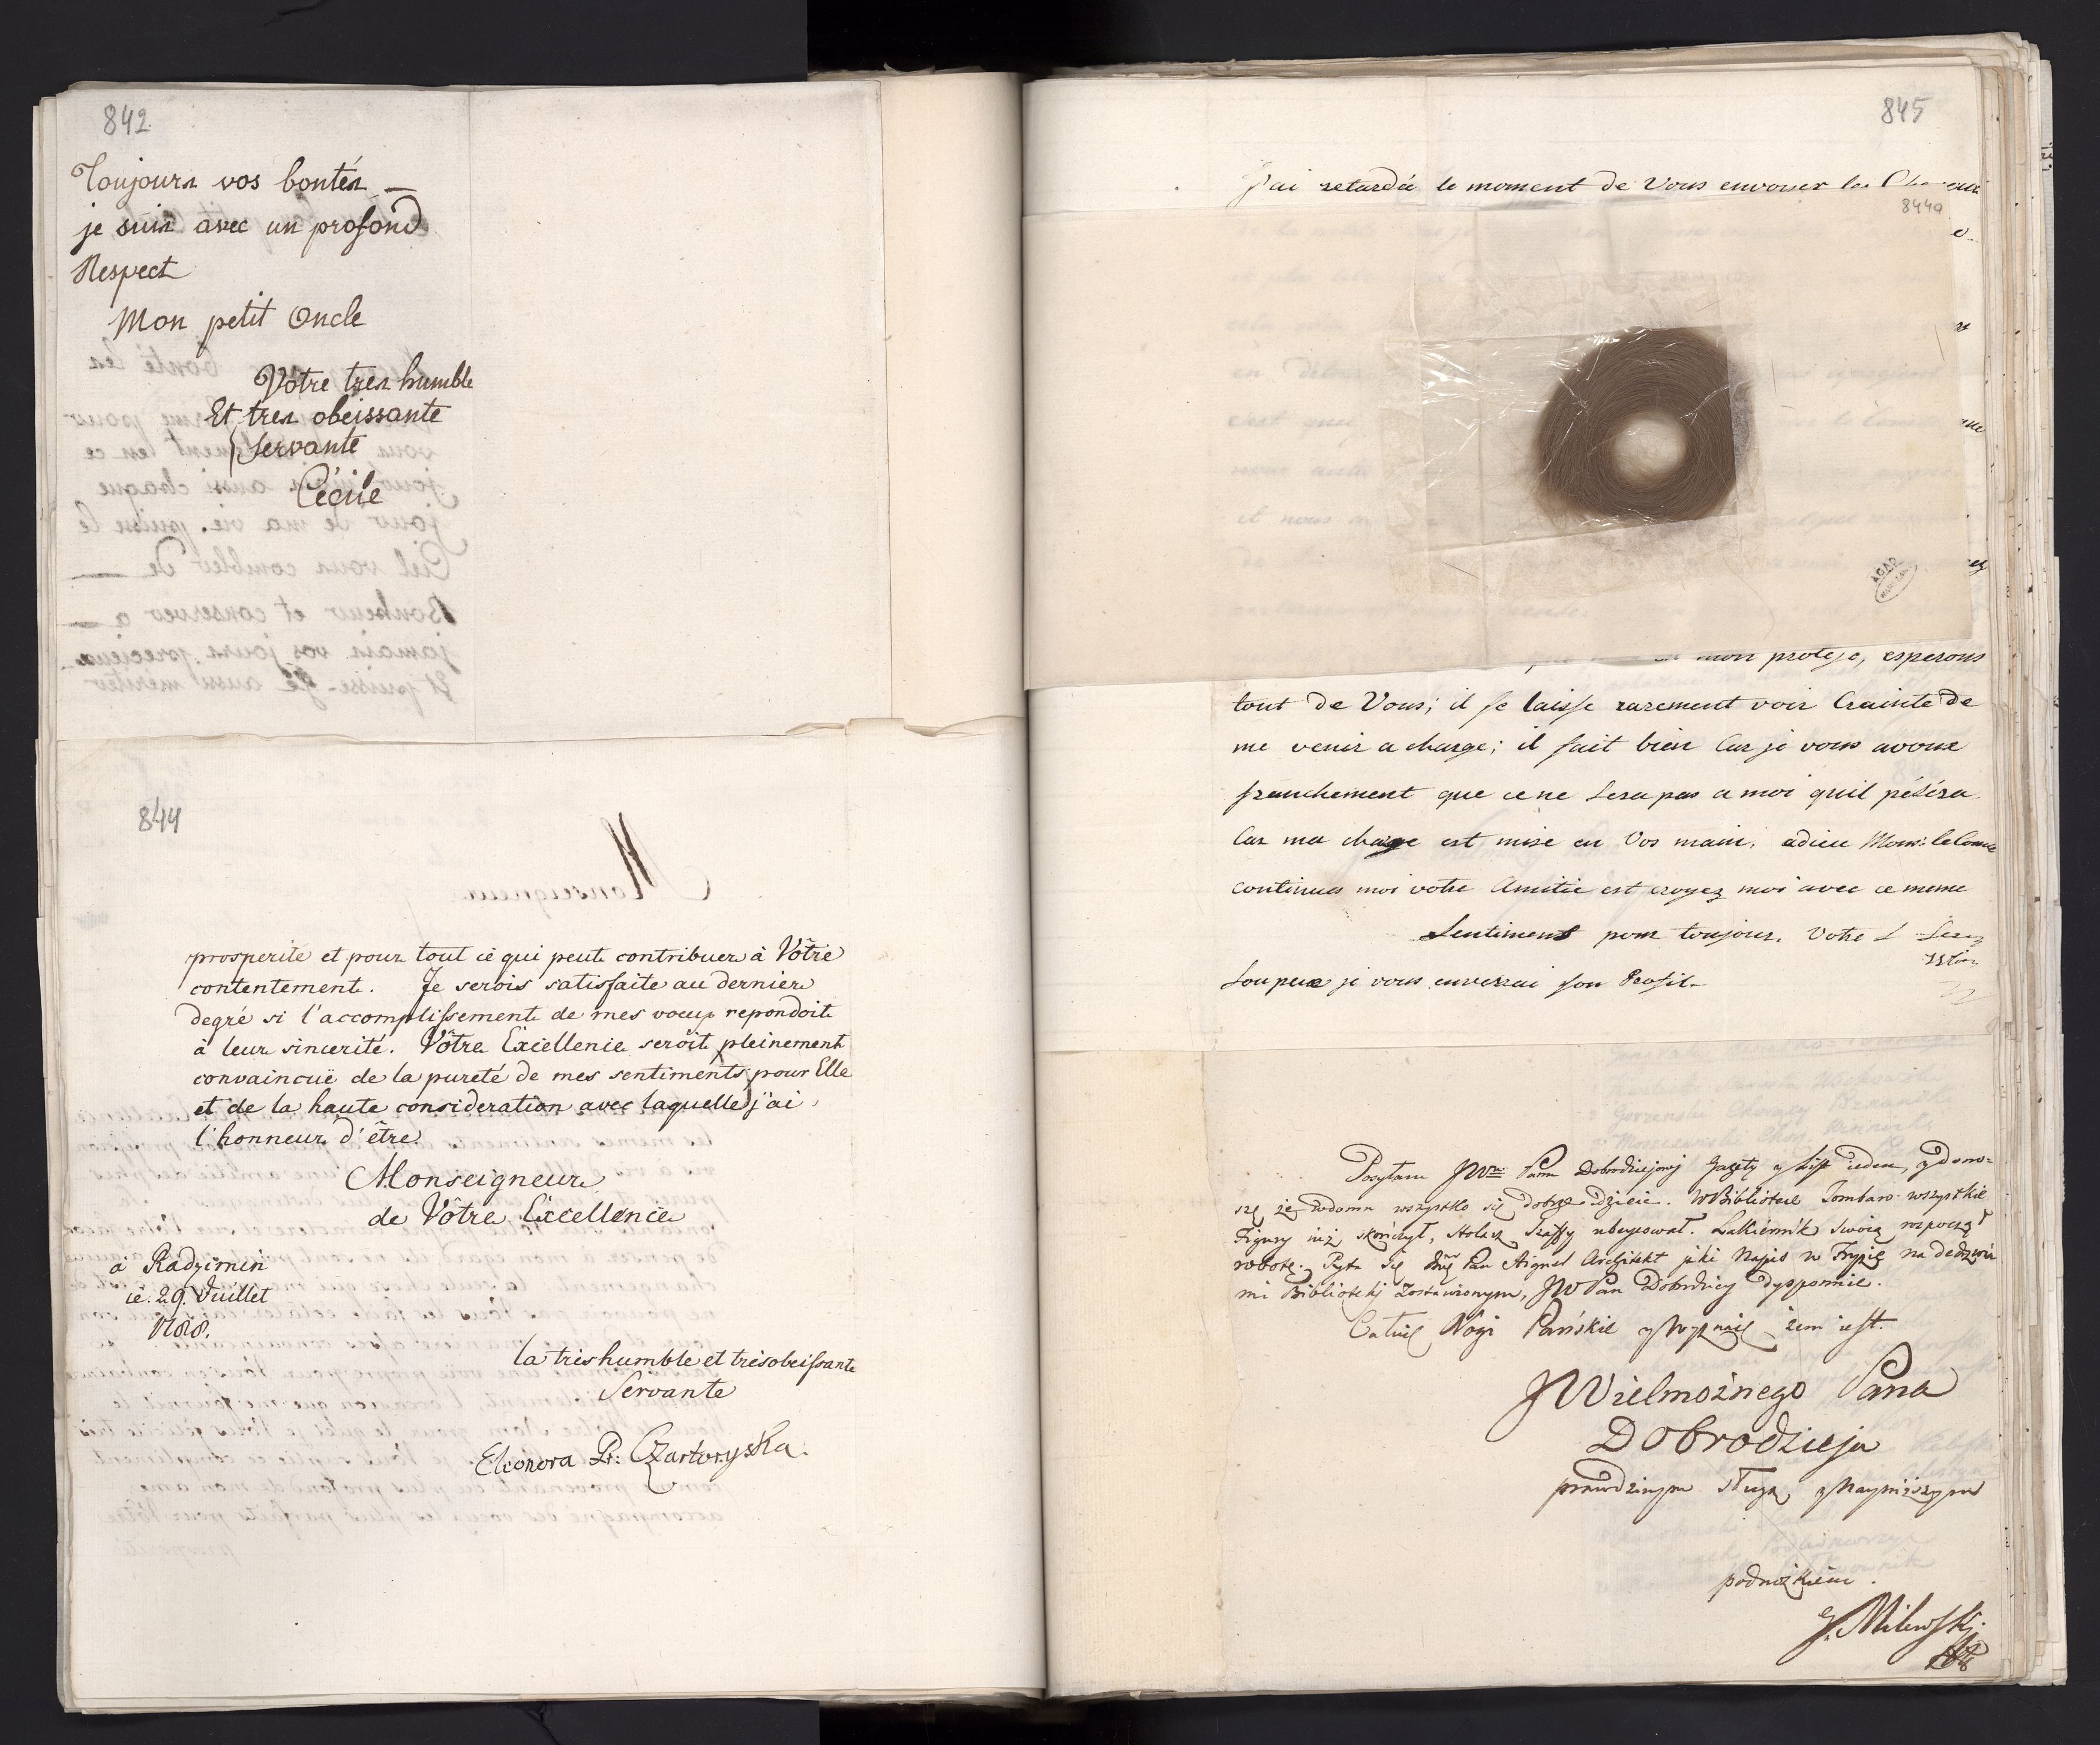 842
Toujours vos bontés —
je suis avec un profond
Respect
Mon petit Oncle
Votre tres humble
Et tres obeissante
Servante
Cécile
844
prosperité et pour tout ce qui peut contribuer à Vôtre
contentement. Je serois satisfaite au dernier
degré si l'accomplissement de mes voeux repondoit
à leur sincerité. Vôtre Excellence seroit pleinement
convaincuë de la pureté de mes sentiments pour Elle
et de la haute consideration avec laquelle j'ai
l'honneur d'être
Monseigneur
de Vôtre Excellence
à Radzimin
ce 29. Juillet
la trèshumble et trèsobeissante
Servante
Eleonora Pr: Czartoryska.
845
J'ai retardée le moment de Vous envoyer les
844a
mon protegé, esperons
tout de Vous; il se laisse rarement voir Crainte de
me venir a charge; il fait bien Car je vous avoue
franchement que ce ne sera pas a moi quil pésera
Car ma charge est mise en Vos main, adieu Mons: le Comte
continues moi votre Amitié est croyez moi avec ce meme
Sentiments pour toujours. Votre
je vous enverrai son Profil-
Posyłam JWnu Panu Dobrodziejowi Gazety y List ieden, y dono=
szę że w domu wszystko się dobrze dzieie. W Bibliotece Lombaro wszystkie
Figury iuż skończył, Stolarz Szaffy Lakiernik Swoią rozpoczął
robotę. Pyta się Pan Aignel Architekt jaki Napis w Fryzie na dedrzwia
mi Biblioteki zostawionym, JW Pan Dobrodziey dysponuie.
Całuię Nogi Pańskie y wyznaię żem iest.
JWielmożnego Pana
Dobrodzieja
prawdziwym sługą y Nayniższym
podnóżkiem.
J. Milewski